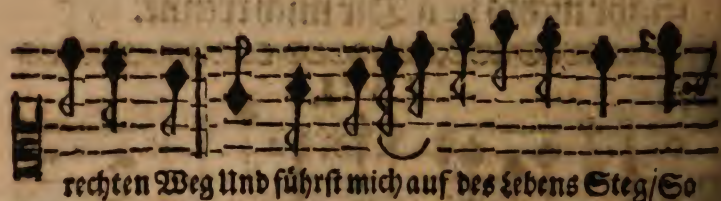 rechten Weg Und führst mich auf des Lebens Steg/So